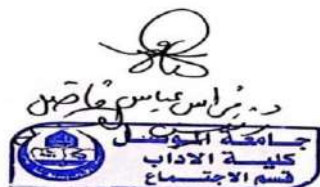 د. فراس عباس فاضل
جامعة الموصل
كلية الآداب
قسم الاجتماع